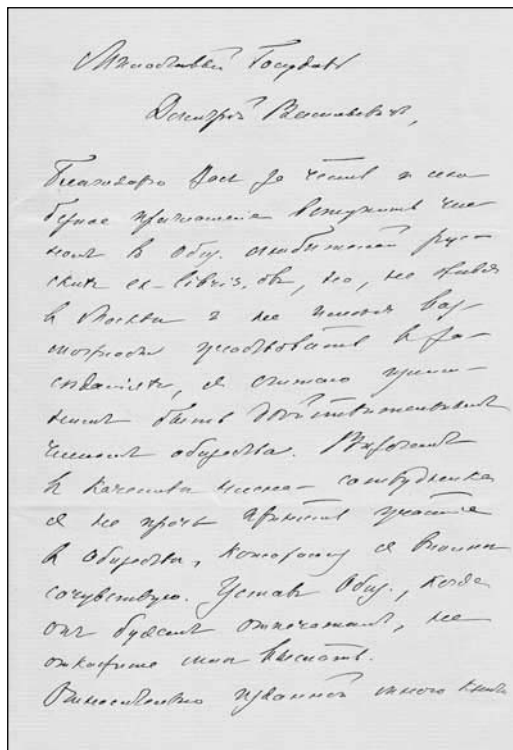 Милостивый Государь
Дмитрий Васильевич,
Благодарю Вас за честь и лю
безное приглашение вступить чле
номъ в Общ. любителей рус
скихъ ex-libris.овъ, но, не живя
в Москве и не имея воз-
можности участвовать в за-
седаніяхъ, я считаю
быть действительнымъ
членомъ общества. Впрочемъ
в качестве члена-сотрудника
я не прочь принять участіе
в обществе, которому я вполне
сочувствую. Уставъ Общ., когда
онъ будетъ отпечатанъ, не
откажите мне выслать.
Относительно изданной мною книги